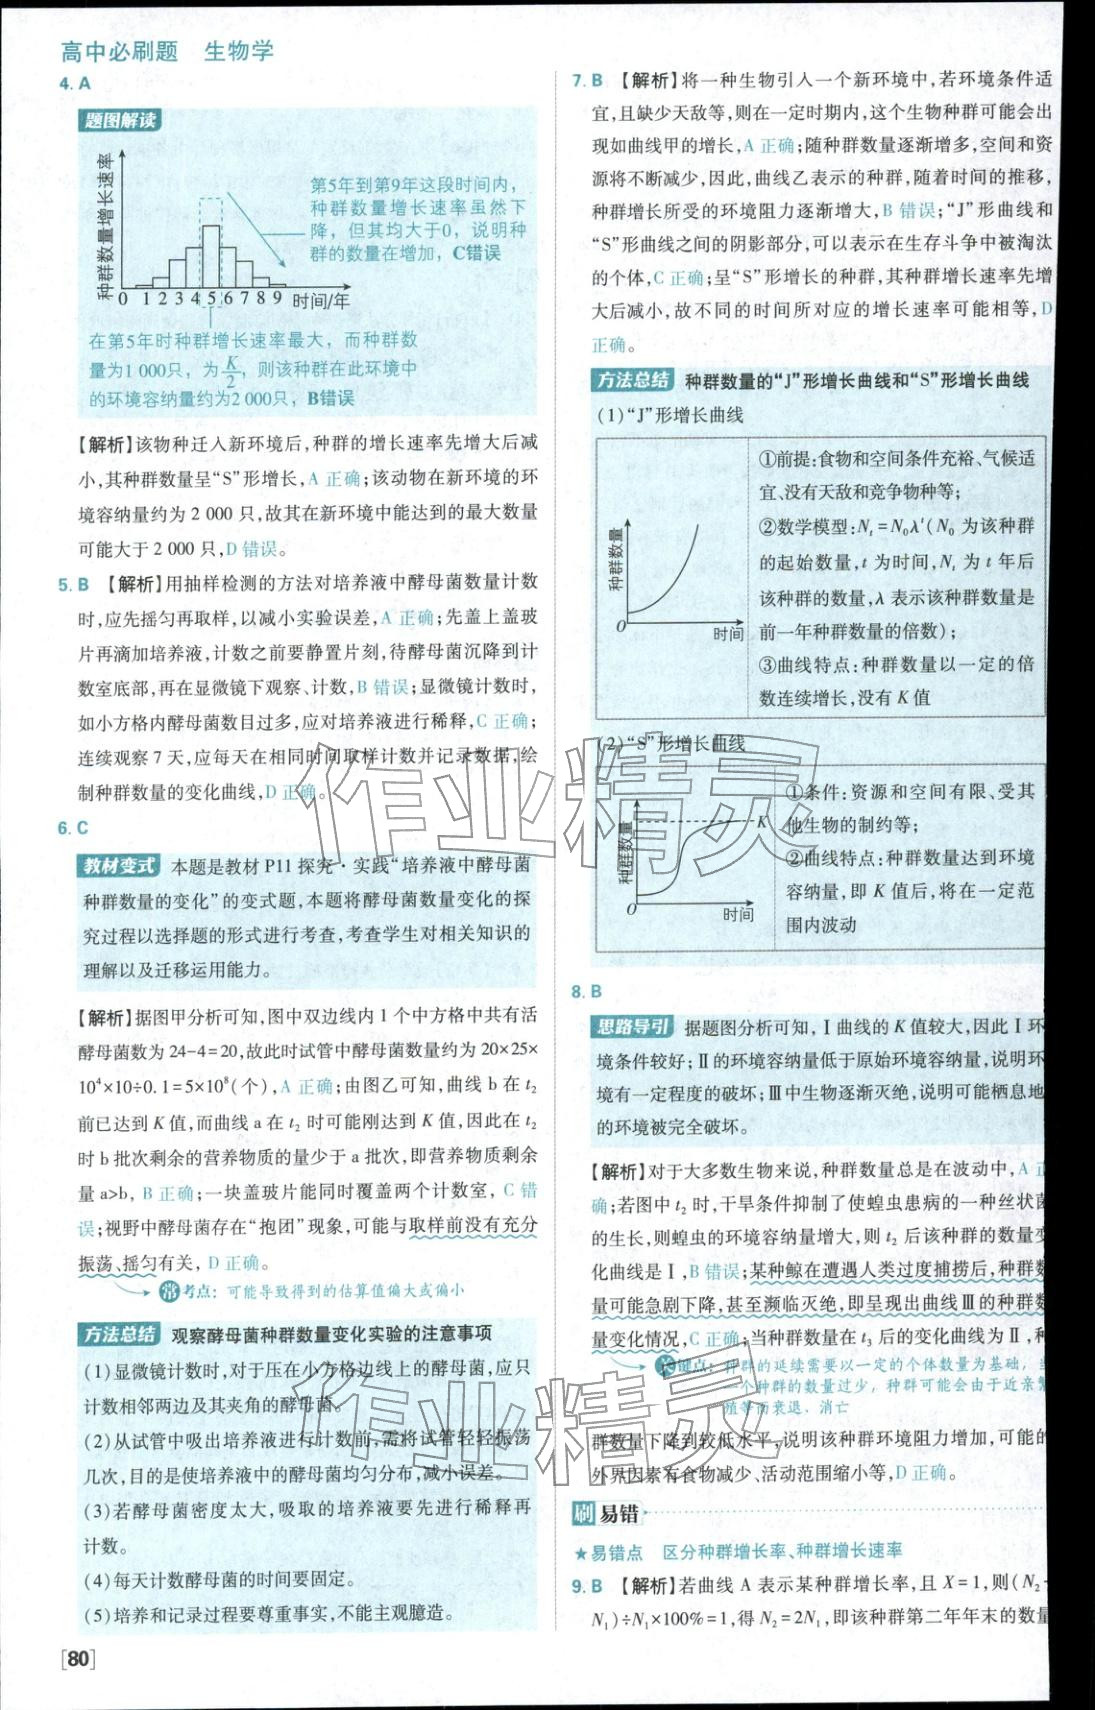 高中必刷题 生物学
4. A
题图解读
种群数量增长速率
第5年到第9年这段时间内，
种群数量增长速率虽然下
降，但其均大于0，说明种
群的数量在增加，C错误
0 1 2 3 4 5 6 7 8 9 时间/年
在第5年时种群增长速率最大，而种群数
量为1 000只，为K/2，则该种群在此环境中
的环境容纳量约为2 000只，B错误
【解析】该物种迁入新环境后,种群的增长速率先增大后减
小,其种群数量呈“S”形增长,A 正确;该动物在新环境的环
境容纳量约为 2 000 只,故其在新环境中能达到的最大数量
可能大于 2 000 只,D 错误。
5. B 【解析】用抽样检测的方法对培养液中酵母菌数量计数
时,应先摇匀再取样,以减小实验误差,A 正确;先盖上盖玻
片再滴加培养液,计数之前要静置片刻,待酵母菌沉降到计
数室底部,再在显微镜下观察、计数,B 错误;显微镜计数时,
如小方格内酵母菌数目过多,应对培养液进行稀释,C 正确;
连续观察 7 天,应每天在相同时间取样计数并记录数据,绘
制种群数量的变化曲线,D 正确。
6. C
教材变式 本题是教材 P11 探究·实践“培养液中酵母菌
种群数量的变化”的变式题,本题将酵母菌数量变化的探
究过程以选择题的形式进行考查,考查学生对相关知识的
理解以及迁移运用能力。
【解析】据图甲分析可知,图中双边线内 1 个中方格中共有活
酵母菌数为 24-4=20,故此时试管中酵母菌数量约为 20×25×
10⁴×10÷0.1=5×10⁸(个),A 正确;由图乙可知,曲线 b 在 t₂
前已达到 K 值,而曲线 a 在 t₂ 时可能刚达到 K 值,因此在 t₂
时 b 批次剩余的营养物质的量少于 a 批次,即营养物质剩余
量 a>b, B 正确;一块盖玻片能同时覆盖两个计数室, C 错
误;视野中酵母菌存在“抱团”现象,可能与取样前没有充分
振荡、摇匀有关, D 正确。
常考点：可能导致得到的估算值偏大或偏小
方法总结 观察酵母菌种群数量变化实验的注意事项
(1)显微镜计数时,对于压在小方格边线上的酵母菌,应只
计数相邻两边及其夹角的酵母菌。
(2)从试管中吸出培养液进行计数前,需将试管轻轻振荡
几次,目的是使培养液中的酵母菌均匀分布,减小误差。
(3)若酵母菌密度太大,吸取的培养液要先进行稀释再
计数。
(4)每天计数酵母菌的时间要固定。
(5)培养和记录过程要尊重事实,不能主观臆造。
[80]
7. B 【解析】将一种生物引入一个新环境中,若环境条件适
宜,且缺少天敌等,则在一定时期内,这个生物种群可能会出
现如曲线甲的增长,A 正确;随种群数量逐渐增多,空间和资
源将不断减少,因此,曲线乙表示的种群,随着时间的推移,
种群增长所受的环境阻力逐渐增大,B 错误;“J”形曲线和
“S”形曲线之间的阴影部分,可以表示在生存斗争中被淘汰
的个体,C 正确;呈“S”形增长的种群,其种群增长速率先增
大后减小,故不同的时间所对应的增长速率可能相等,D
正确。
方法总结 种群数量的“J”形增长曲线和“S”形增长曲线
(1)“J”形增长曲线
种群数量
O
时间
①前提:食物和空间条件充裕、气候适
宜、没有天敌和竞争物种等;
②数学模型:Nₜ=N₀λᵗ(N₀ 为该种群
的起始数量,t 为时间,Nₜ 为 t 年后
该种群的数量,λ 表示该种群数量是
前一年种群数量的倍数);
③曲线特点:种群数量以一定的倍
数连续增长,没有 K 值
(2)“S”形增长曲线
种群数量
K
O
时间
①条件:资源和空间有限、受其
他生物的制约等;
②曲线特点:种群数量达到环境
容纳量,即 K 值后,将在一定范
围内波动
8. B
思路导引 据题图分析可知,Ⅰ曲线的 K 值较大,因此Ⅰ环
境条件较好;Ⅱ的环境容纳量低于原始环境容纳量,说明环
境有一定程度的破坏;Ⅲ中生物逐渐灭绝,说明可能栖息地
的环境被完全破坏。
【解析】对于大多数生物来说,种群数量总是在波动中,A 正
确;若图中 t₂ 时,干旱条件抑制了使蝗虫患病的一种丝状菌
的生长,则蝗虫的环境容纳量增大,则 t₂ 后该种群的数量变
化曲线是Ⅰ,B 错误;某种鲸在遭遇人类过度捕捞后,种群数
量可能急剧下降,甚至濒临灭绝,即呈现出曲线Ⅲ的种群数
量变化情况,C 正确;当种群数量在 t₃ 后的变化曲线为Ⅱ,种
关键点：种群的延续需要以一定的个体数量为基础，当
一个种群的数量过少，种群可能会由于近亲繁
殖等而衰退、消亡
群数量下降到较低水平,说明该种群环境阻力增加,可能的
外界因素有食物减少、活动范围缩小等,D 正确。
刷 易错
★易错点 区分种群增长率、种群增长速率
9. B 【解析】若曲线 A 表示某种群增长率,且 X=1,则(N₂-
N₁)÷N₁×100%=1,得 N₂=2N₁,即该种群第二年年末的数量
作业精灵
作业精灵